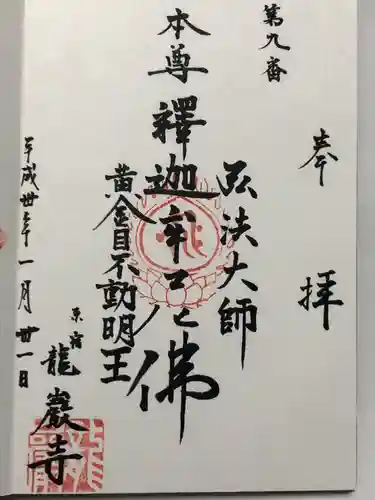 奉拝
第九番
弘法大師
本尊 釋迦牟尼佛
黄金目不動明王
原宿 龍巖寺
平成卅年一月卅一日